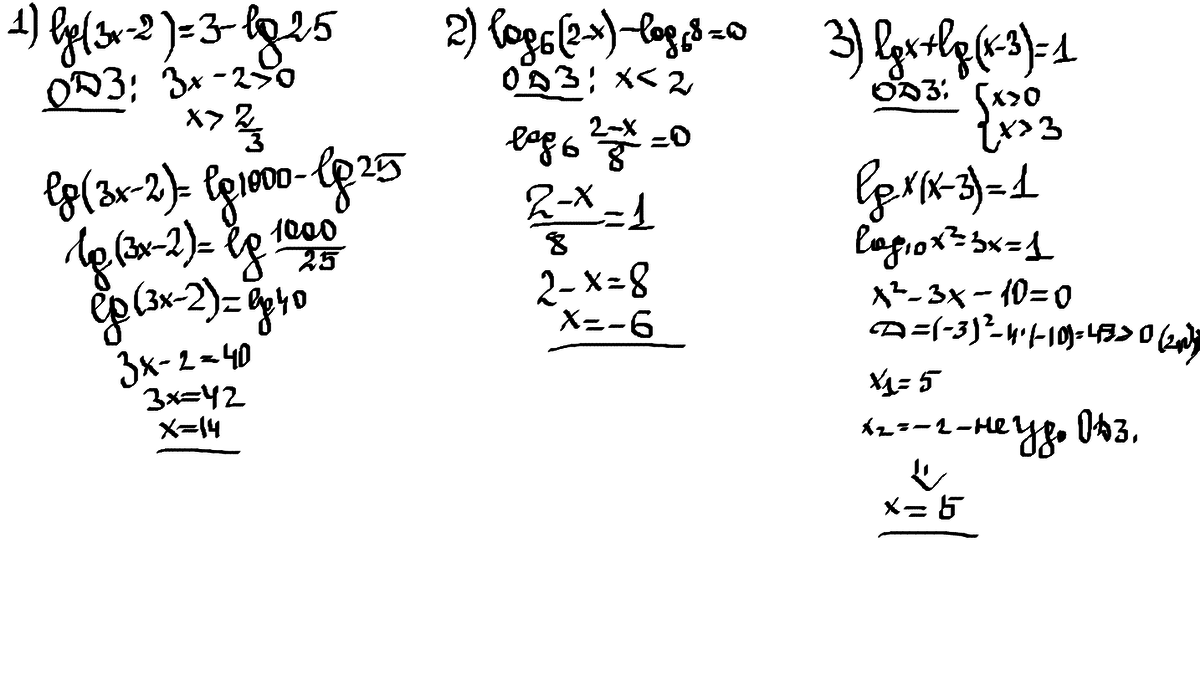 1) lg(3x-2)=3-lg25
ОДЗ: 3x-2>0
x>2/3
lg(3x-2)=lg1000-lg25
lg(3x-2)=lg 1000/25
lg(3x-2)=lg40
3x-2=40
3x=42
x=14
2) log₆(2-x)-log₆8=0
ОДЗ: x<2
log₆ (2-x)/8=0
(2-x)/8=1
2-x=8
x=-6
3) lgx+lg(x-3)=1
ОДЗ: { x>0
x>3
lgx(x-3)=1
log₁₀x²-3x=1
x²-3x-10=0
D=(-3)²-4·(-10)=49>0
x₁=5
x₂=-2-не уд. ОДЗ.
⇓
x=5